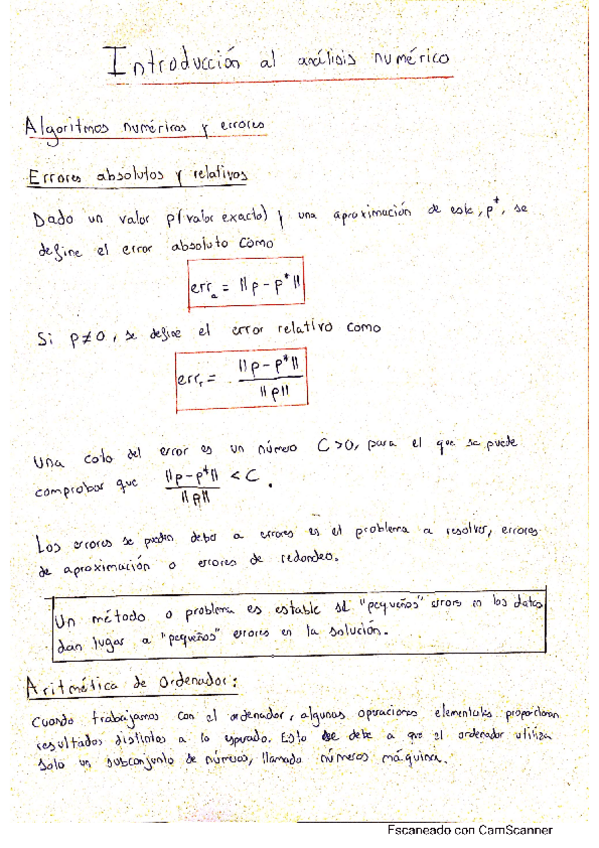 Introducción al análisis numérico
Algoritmos numéricos y errores
Errores absolutos y relativos
Dado un valor p(valor exacto) y una aproximación de este, p*, se
define el error absoluto como
err_a = ||p - p*||
Si p≠0, se define el error relativo como
err_r = ||p - p*|| / ||p||
Una cota del error es un número C>0, para el que se puede
comprobar que ||p - p*|| / ||p|| < C.
Los errores se pueden deber a errores es el problema a resolver, errores
de aproximación o errores de redondeo.
Un método o problema es estable si "pequeños" errores en los datos
dan lugar a "pequeños" errores en la solución.
Aritmética de ordenador:
Cuando trabajamos con el ordenador, algunas operaciones elementales proporcionan
resultados distintos a lo esperado. Esto se debe a que el ordenador utiliza
solo un subconjunto de números, llamado números máquina.
Escaneado con CamScanner